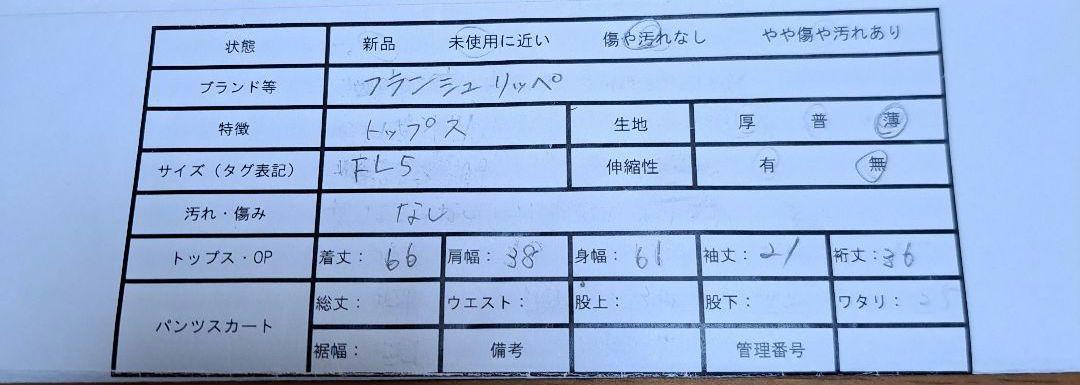 状態 新品 未使用に近い 傷や汚れなし やや傷や汚れあり
ブランド等 フランシュリッペ
特徴 トップス 生地 厚 普 薄
サイズ（タグ表記） FL5 伸縮性 有 無
汚れ・傷み なし
トップス・OP 着丈：66 肩幅：38 身幅：61 袖丈：21 裄丈：36
パンツスカート 総丈： ウエスト： 股上： 股下： ワタリ：
裾幅： 備考 管理番号